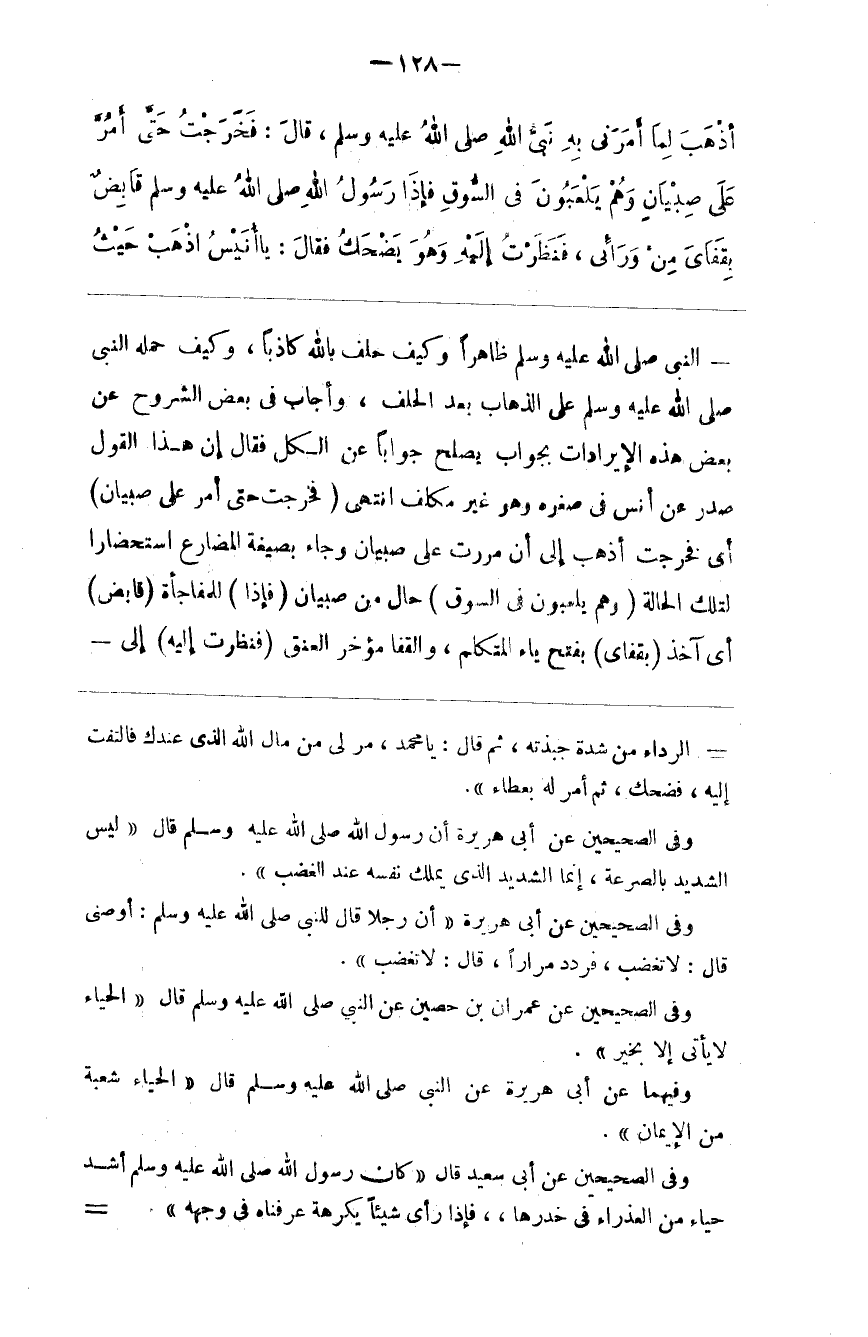 —١٢٨—
أذْهَبَ لِمَا أَمَرَنى بِهِ نَبىُّ اللهِ صلى اللهُ عليه وسلم ، قالَ : فَخَرَجْتُ حَتَّى أَمُرَّ
عَلَى صِبْيَانٍ وَهُمْ يَلْعَبُونَ فى السُّوقِ فإذَا رَسُولُ اللهِ صلى اللهُ عليه وسلم قَابِضٌ
بِقَفَاىَ مِنْ وَرَائى ، فَنَظَرْتُ إلَيْهِ وَهُوَ يَضْحَكُ فقالَ : ياأُنَيْسُ اذْهَبْ حَيْثُ
— النبى صلى الله عليه وسلم ظاهراً وكيف حلف بالله كاذباً ، وكيف حمله النبى
صلى الله عليه وسلم على الذهاب بعد الحلف ، وأجاب فى بعض الشروح عن
بعض هذه الإيرادات بجواب يصلح جواباً عن الـكل فقال إن هـذا القول
صدر عن أنس فى صغره وهو غير مكلف انتهى ( فخرجت حتى أمر على صبيان)
أى فخرجت أذهب إلى أن مررت على صبيان وجاء بصيغة المضارع استحضارا
لتلك الحالة ( وهم يلعبون فى السوق ) حال من صبيان ( فإذا ) للمفاجأة (قابض)
أى آخذ (بقفاى) بفتح ياء المتكلم ، والقفا مؤخر العنق (فنظرت إليه) إلى —
= الرداء من شدة جبذته ، ثم قال : يامحمد ، مر لى من مال الله الذى عندك فالتفت
إليه ، فضحك ، ثم أمر له بعطاء » .
وفى الصحيحين عن أبى هريرة أن رسول الله صلى الله عليه وسـلم قال « ليس
الشديد بالصرعة ، إنما الشديد الذى يملك نفسه عند الغضب » .
وفى الصحيحين عن أبى هريرة « أن رجلا قال للنبى صلى الله عليه وسلم : أوصنى
قال : لاتغضب ، فردد مراراً ، قال : لاتغضب » .
وفى الصحيحين عن عمران بن حصين عن النبي صلى الله عليه وسلم قال « الحياء
لايأتى إلا بخير » .
وفيهما عن أبى هريرة عن النبى صلى الله عليه وسـلم قال « الحياء شعبة
من الإيمان » .
وفى الصحيحين عن أبى سعيد قال « كان رسول الله صلى الله عليه وسلم أشـد
حياء من العذراء فى خدرها ، ، فإذا رأى شيئاً يكرهة عرفناه فى وجهه » . =